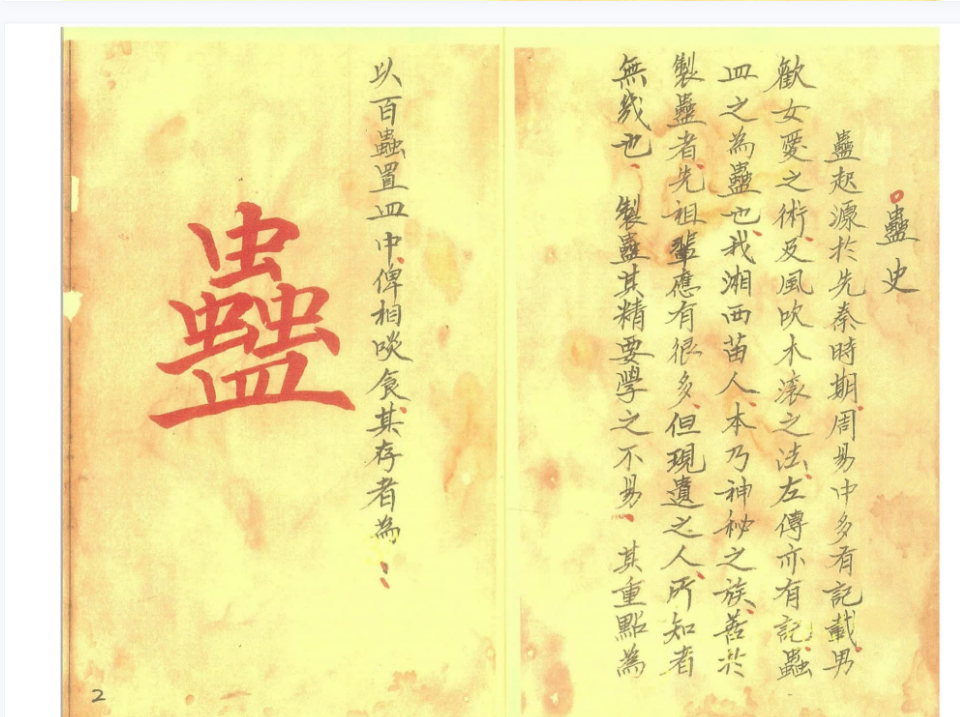 蠱史
蠱起源於先秦時期周易中多有記載男
歡女愛之術及風吹木滾之法左傳亦有記蟲
皿之為蠱也我湘西苗人本乃神秘之族善於
製蠱者先祖輩應有很多但現遺之人所知者
無幾也、製蠱其精要學之不易、其重點為
以百蟲置皿中俾相啖食其存者為：
蠱
2